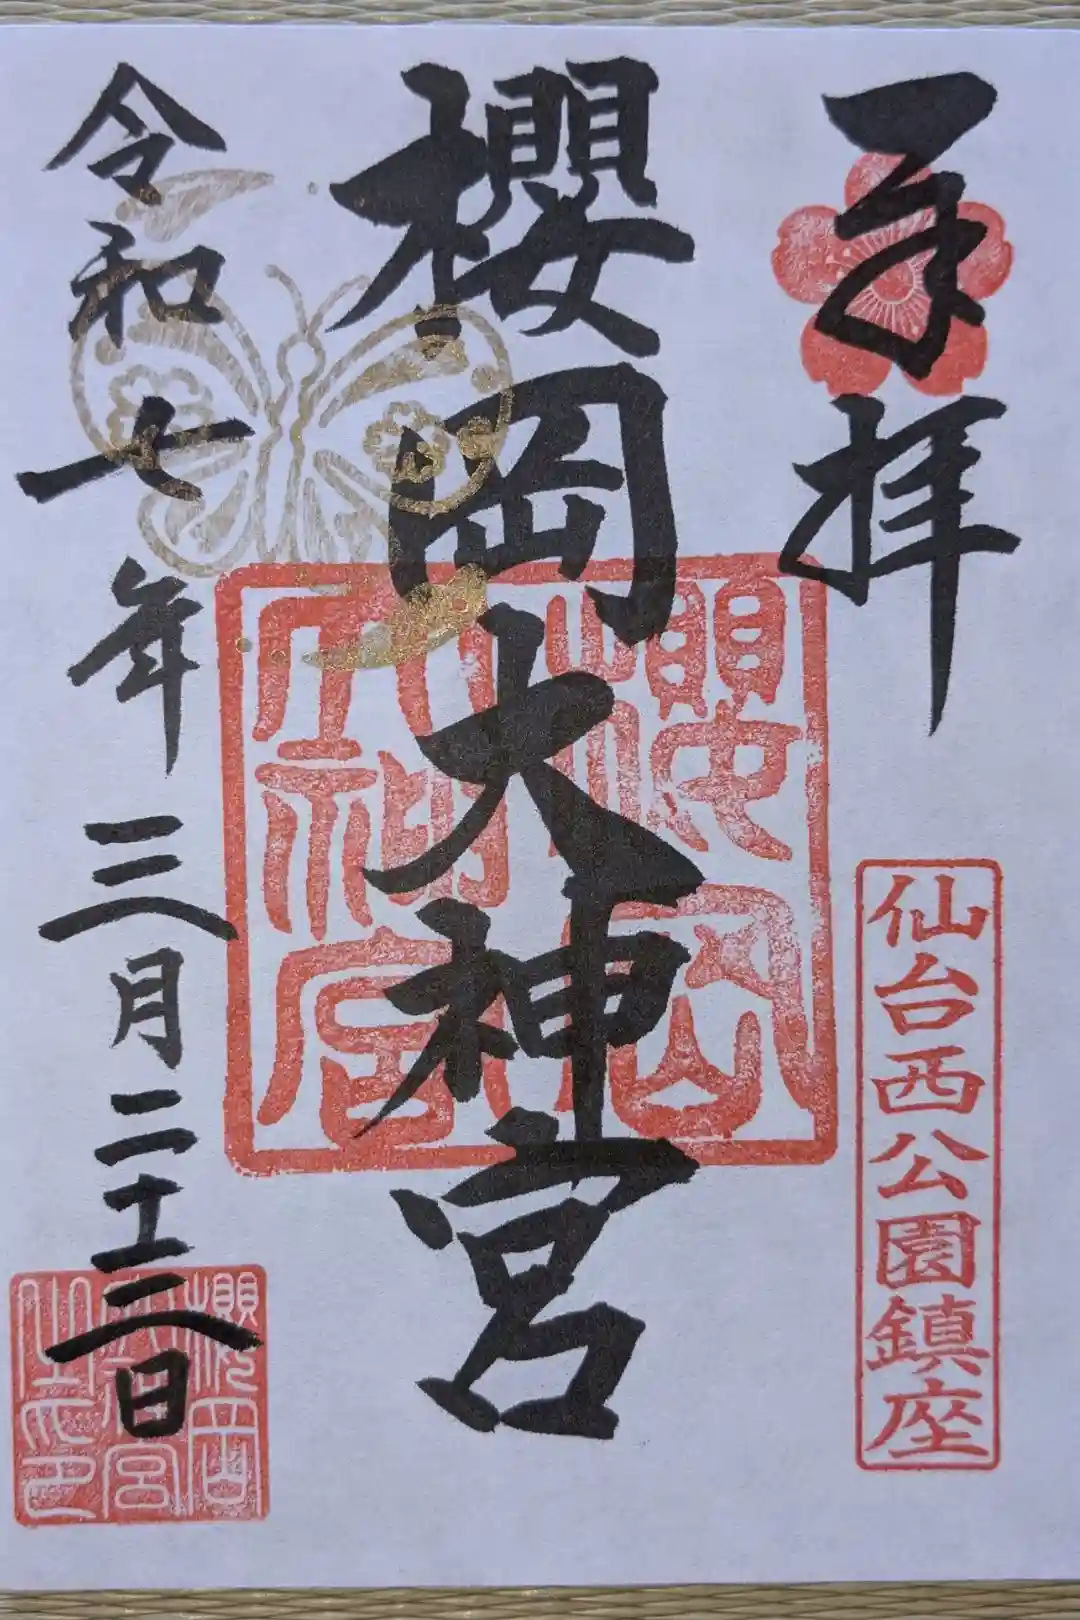 奉拝
仙台西公園鎮座
櫻岡大神宮
櫻岡
大神宮
令和七年三月二十三日
櫻岡
大神宮
之印